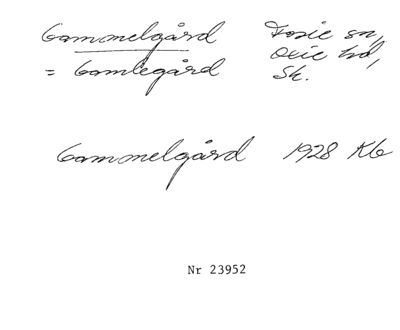 Gammelgård Fosie sn,
= Gamlegård Oxie hd,
Sk.
Gammelgård 1928 Kb
Nr 23952